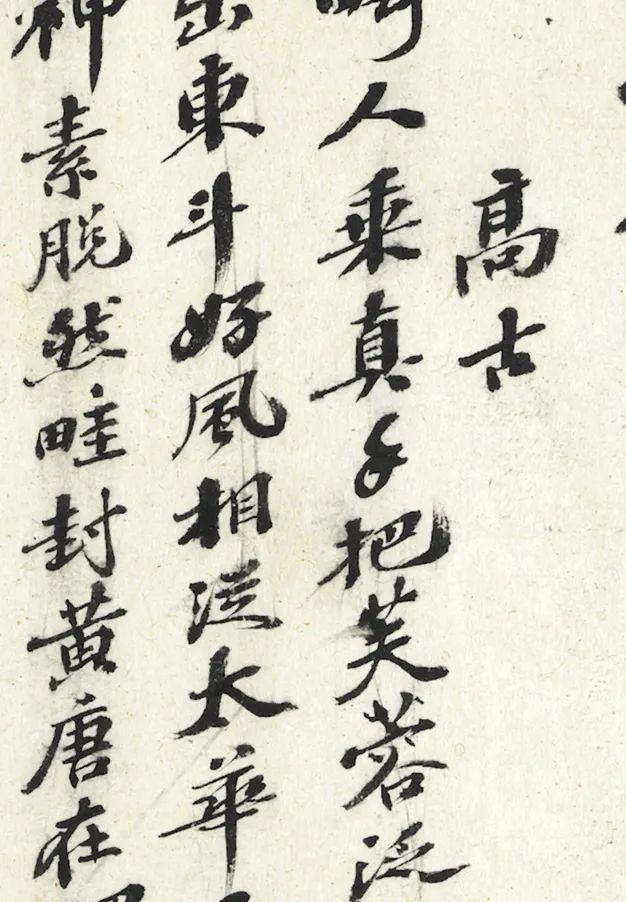 高古
畸人乘真手把芙蓉泛
出東斗好風相從太華
神素脫然畦封黃唐在